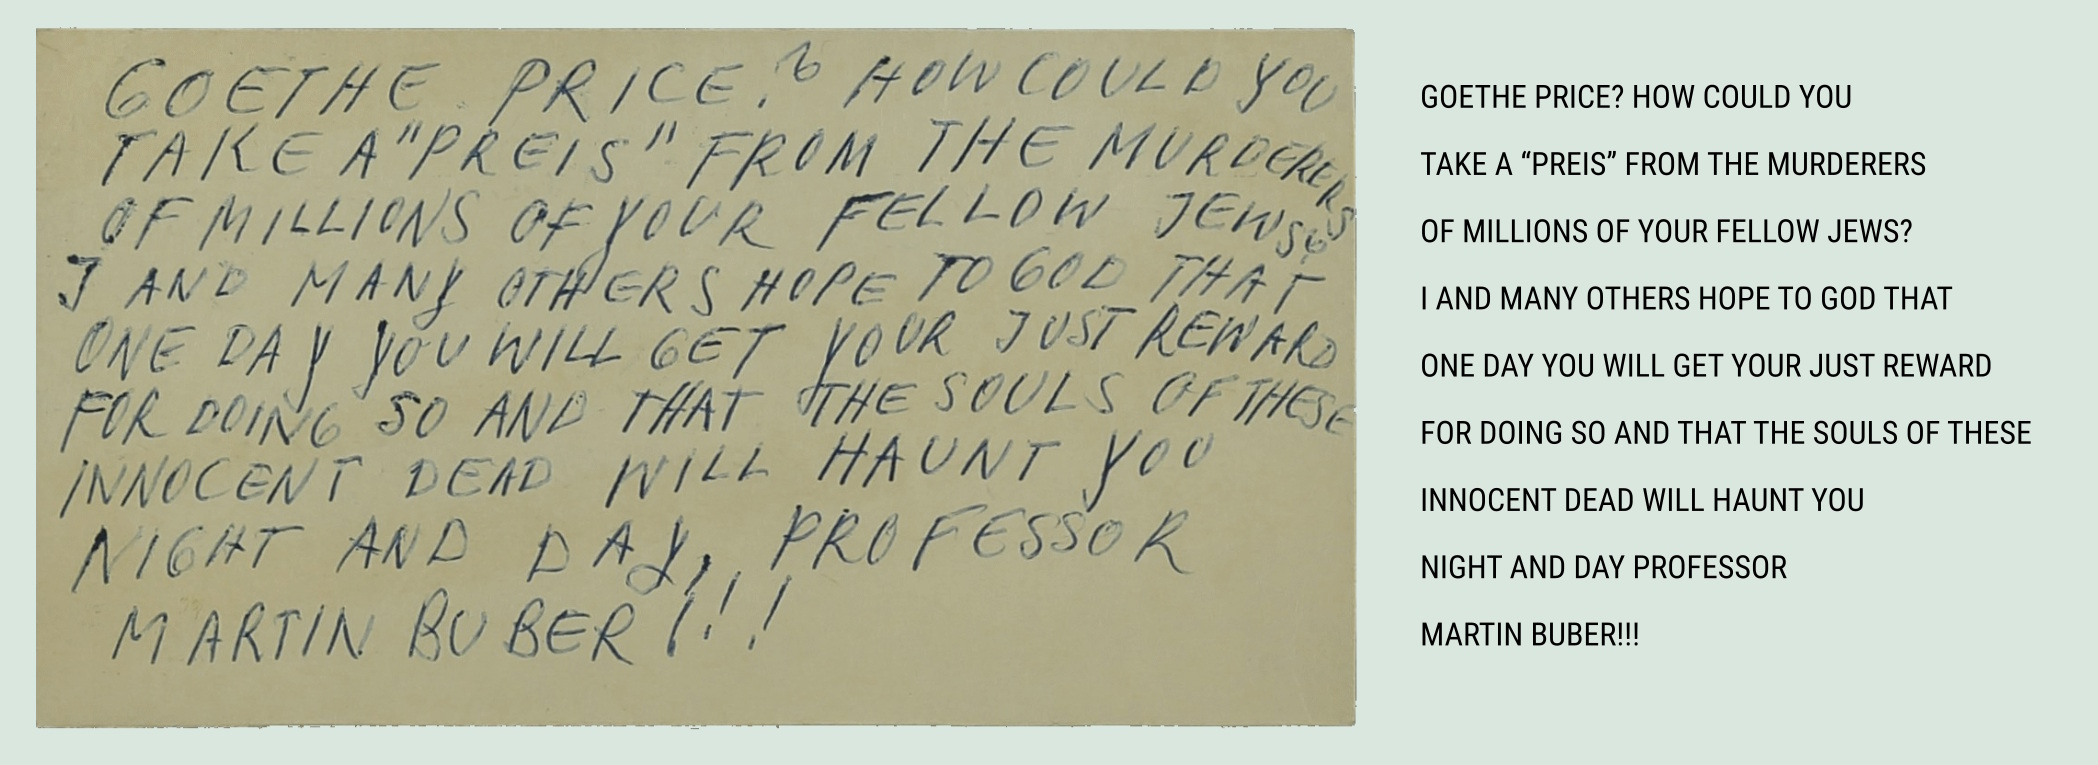 GOETHE PRICE? HOW COULD YOU
TAKE A "PREIS" FROM THE MURDERERS
OF MILLIONS OF YOUR FELLOW JEWS?
I AND MANY OTHERS HOPE TO GOD THAT
ONE DAY YOU WILL GET YOUR JUST REWARD
FOR DOING SO AND THAT THE SOULS OF THESE
INNOCENT DEAD WILL HAUNT YOU
NIGHT AND DAY, PROFESSOR
MARTIN BUBER!!!
GOETHE PRICE? HOW COULD YOU
TAKE A “PREIS” FROM THE MURDERERS
OF MILLIONS OF YOUR FELLOW JEWS?
I AND MANY OTHERS HOPE TO GOD THAT
ONE DAY YOU WILL GET YOUR JUST REWARD
FOR DOING SO AND THAT THE SOULS OF THESE
INNOCENT DEAD WILL HAUNT YOU
NIGHT AND DAY PROFESSOR
MARTIN BUBER!!!